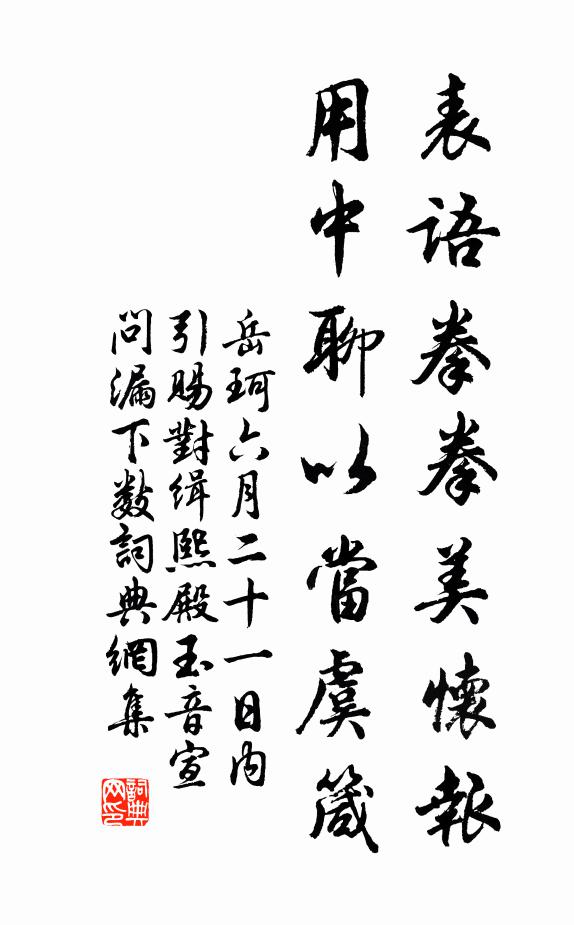 表語拳拳美懷報
用中聊以當虞箴
岳珂六月二十一日內
引賜對緝熙殿玉音宣
問漏下數詞典網集
詞典網印